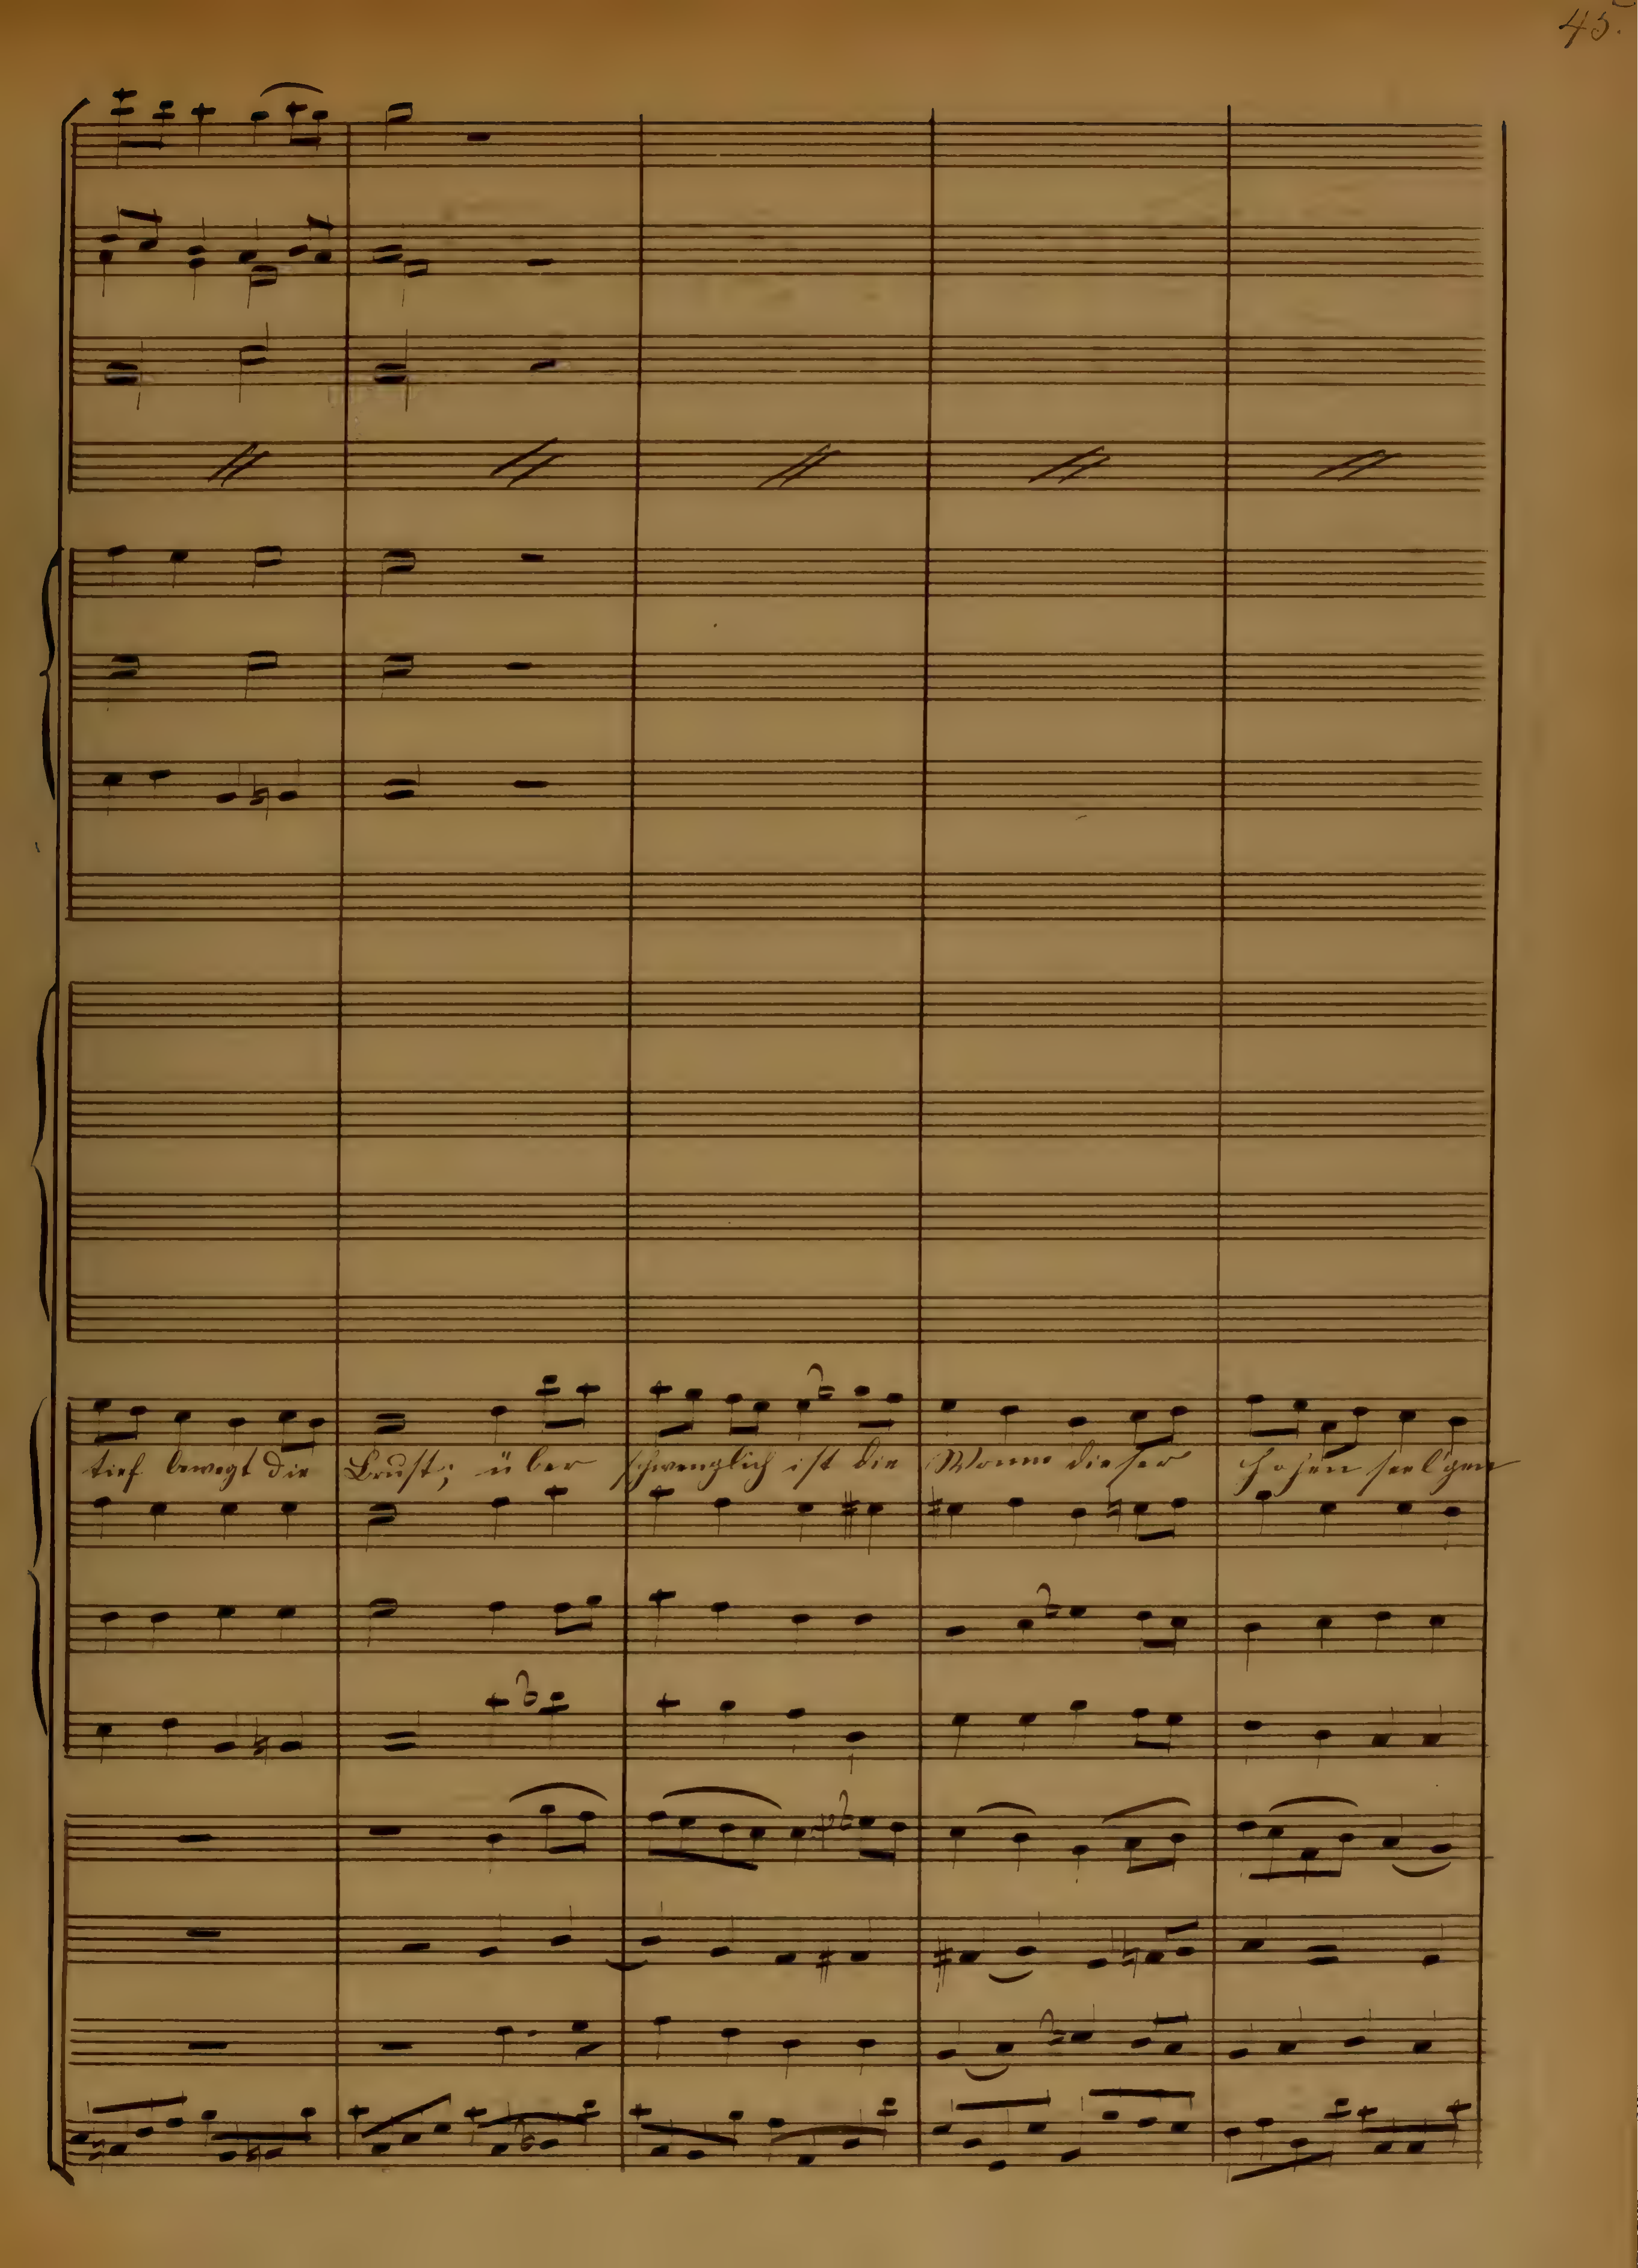 45.
tief bewegt die Brust; über schwenglich ist die Wonne dieser hohen seel'gen